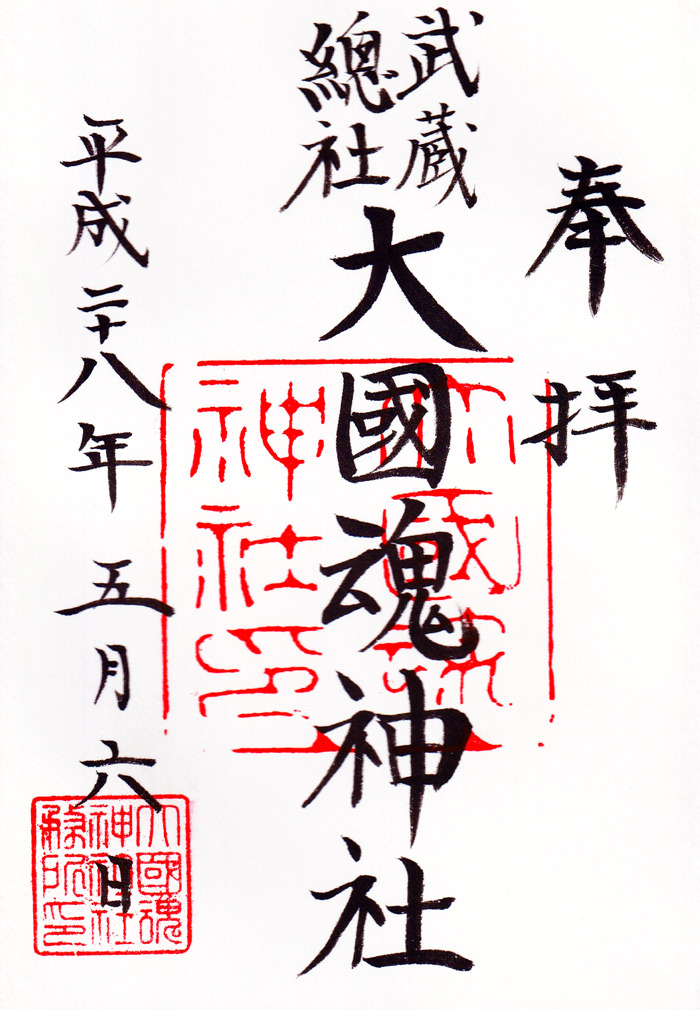 奉拝
武蔵
總社
大國魂神社
平成二十八年五月六日
大國魂
神社印
大國魂
神社
務所印